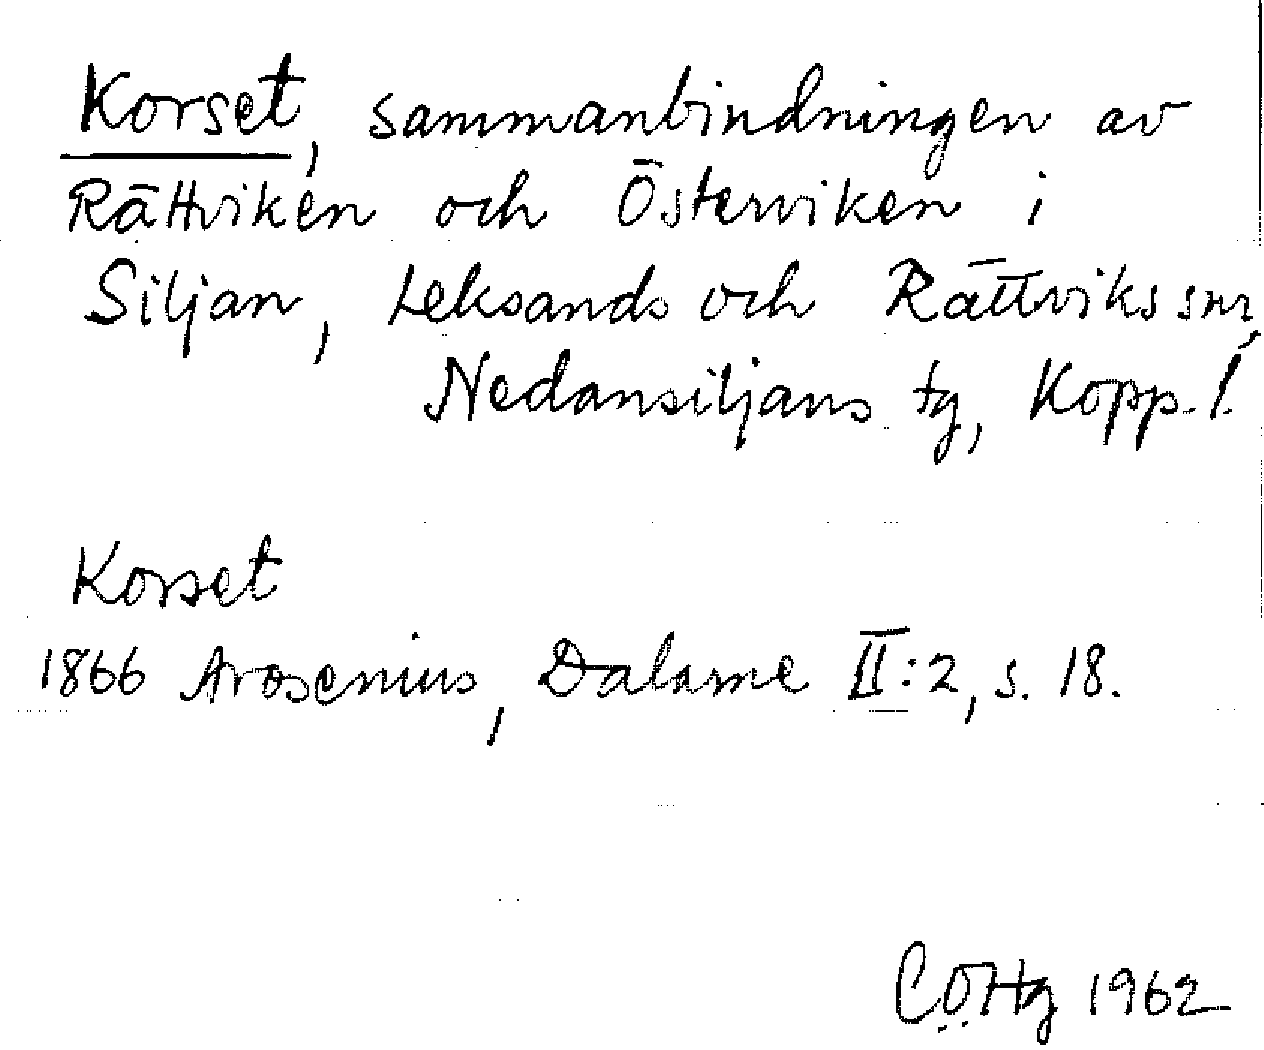 Korset, sammanbindningen av
Rättviken och Österviken i
Siljan, Leksands och Rättviks snr,
Nedansiljans tg, Kopp. l.
Korset
1866 Arosenius, Dalarne II:2, s. 18.
1962